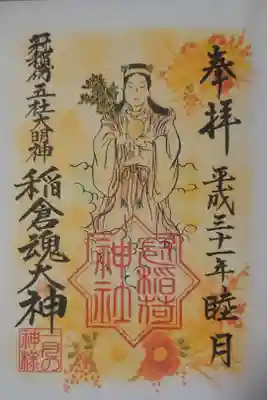 奉拝
平成三十一年 睦月
稲荷
神社
五社大明神
稲倉魂大神
一月の
神様